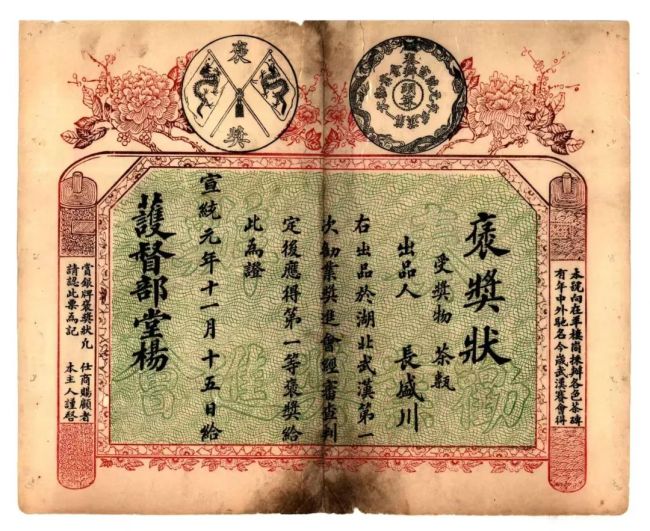 褒獎
頭等
本號向在羊樓峒揀辦各色茶磚
有年中外馳名今歲武漢賽會得
褒獎狀
受獎物 茶甎
出品人 長盛川
右出品於湖北武漢第一
次勸業獎進會經審查判
定後應得第一等褒獎給
此為證
宣統元年十一月十五日給
護督部堂楊
賞銀牌褒獎狀凡 仕商賜顧者
請認此票為記 本主人謹啓